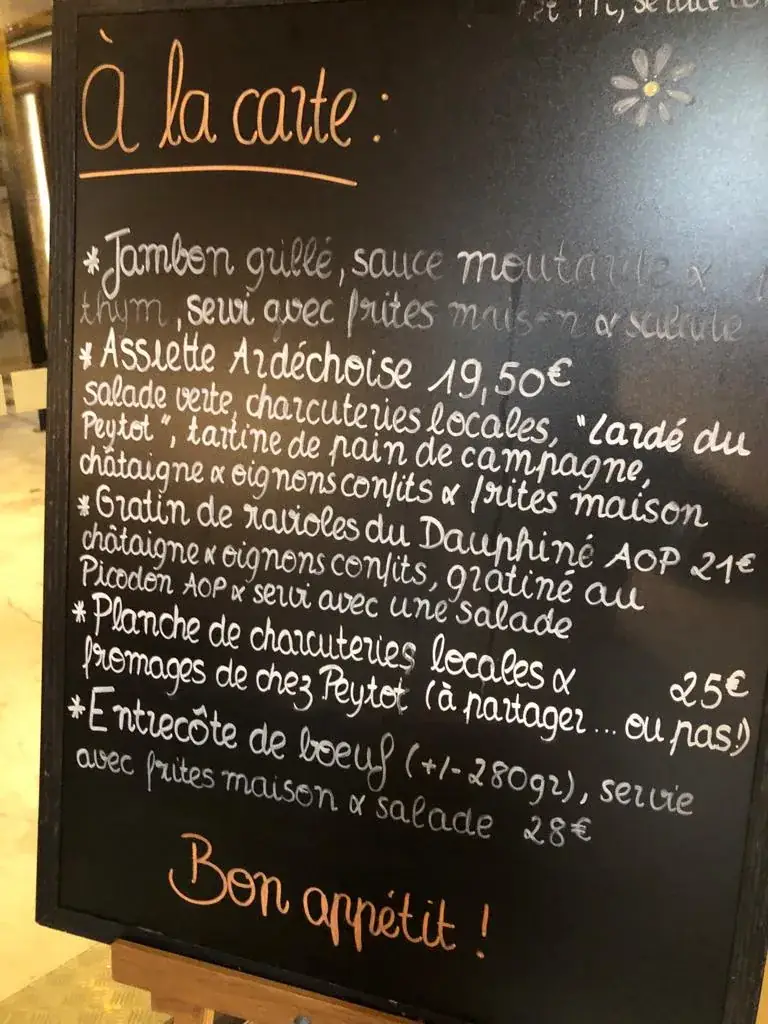 À la carte :
*Jambon grillé, sauce moutarde &
thym, servi avec frites maison & salade
*Assiette Ardéchoise 19,50€
salade verte, charcuteries locales, "Lardé du
Peytot", tartine de pain de campagne,
châtaigne & oignons confits & frites maison
*Gratin de ravioles du Dauphiné AOP 21€
châtaigne & oignons confits, gratiné au
Picodon AOP & servi avec une salade
*Planche de charcuteries locales & 25€
fromages de chez Peytot (à partager ... ou pas!)
*Entrecôte de boeuf (+/-280gr), servie
avec frites maison & salade 28€
Bon appétit !